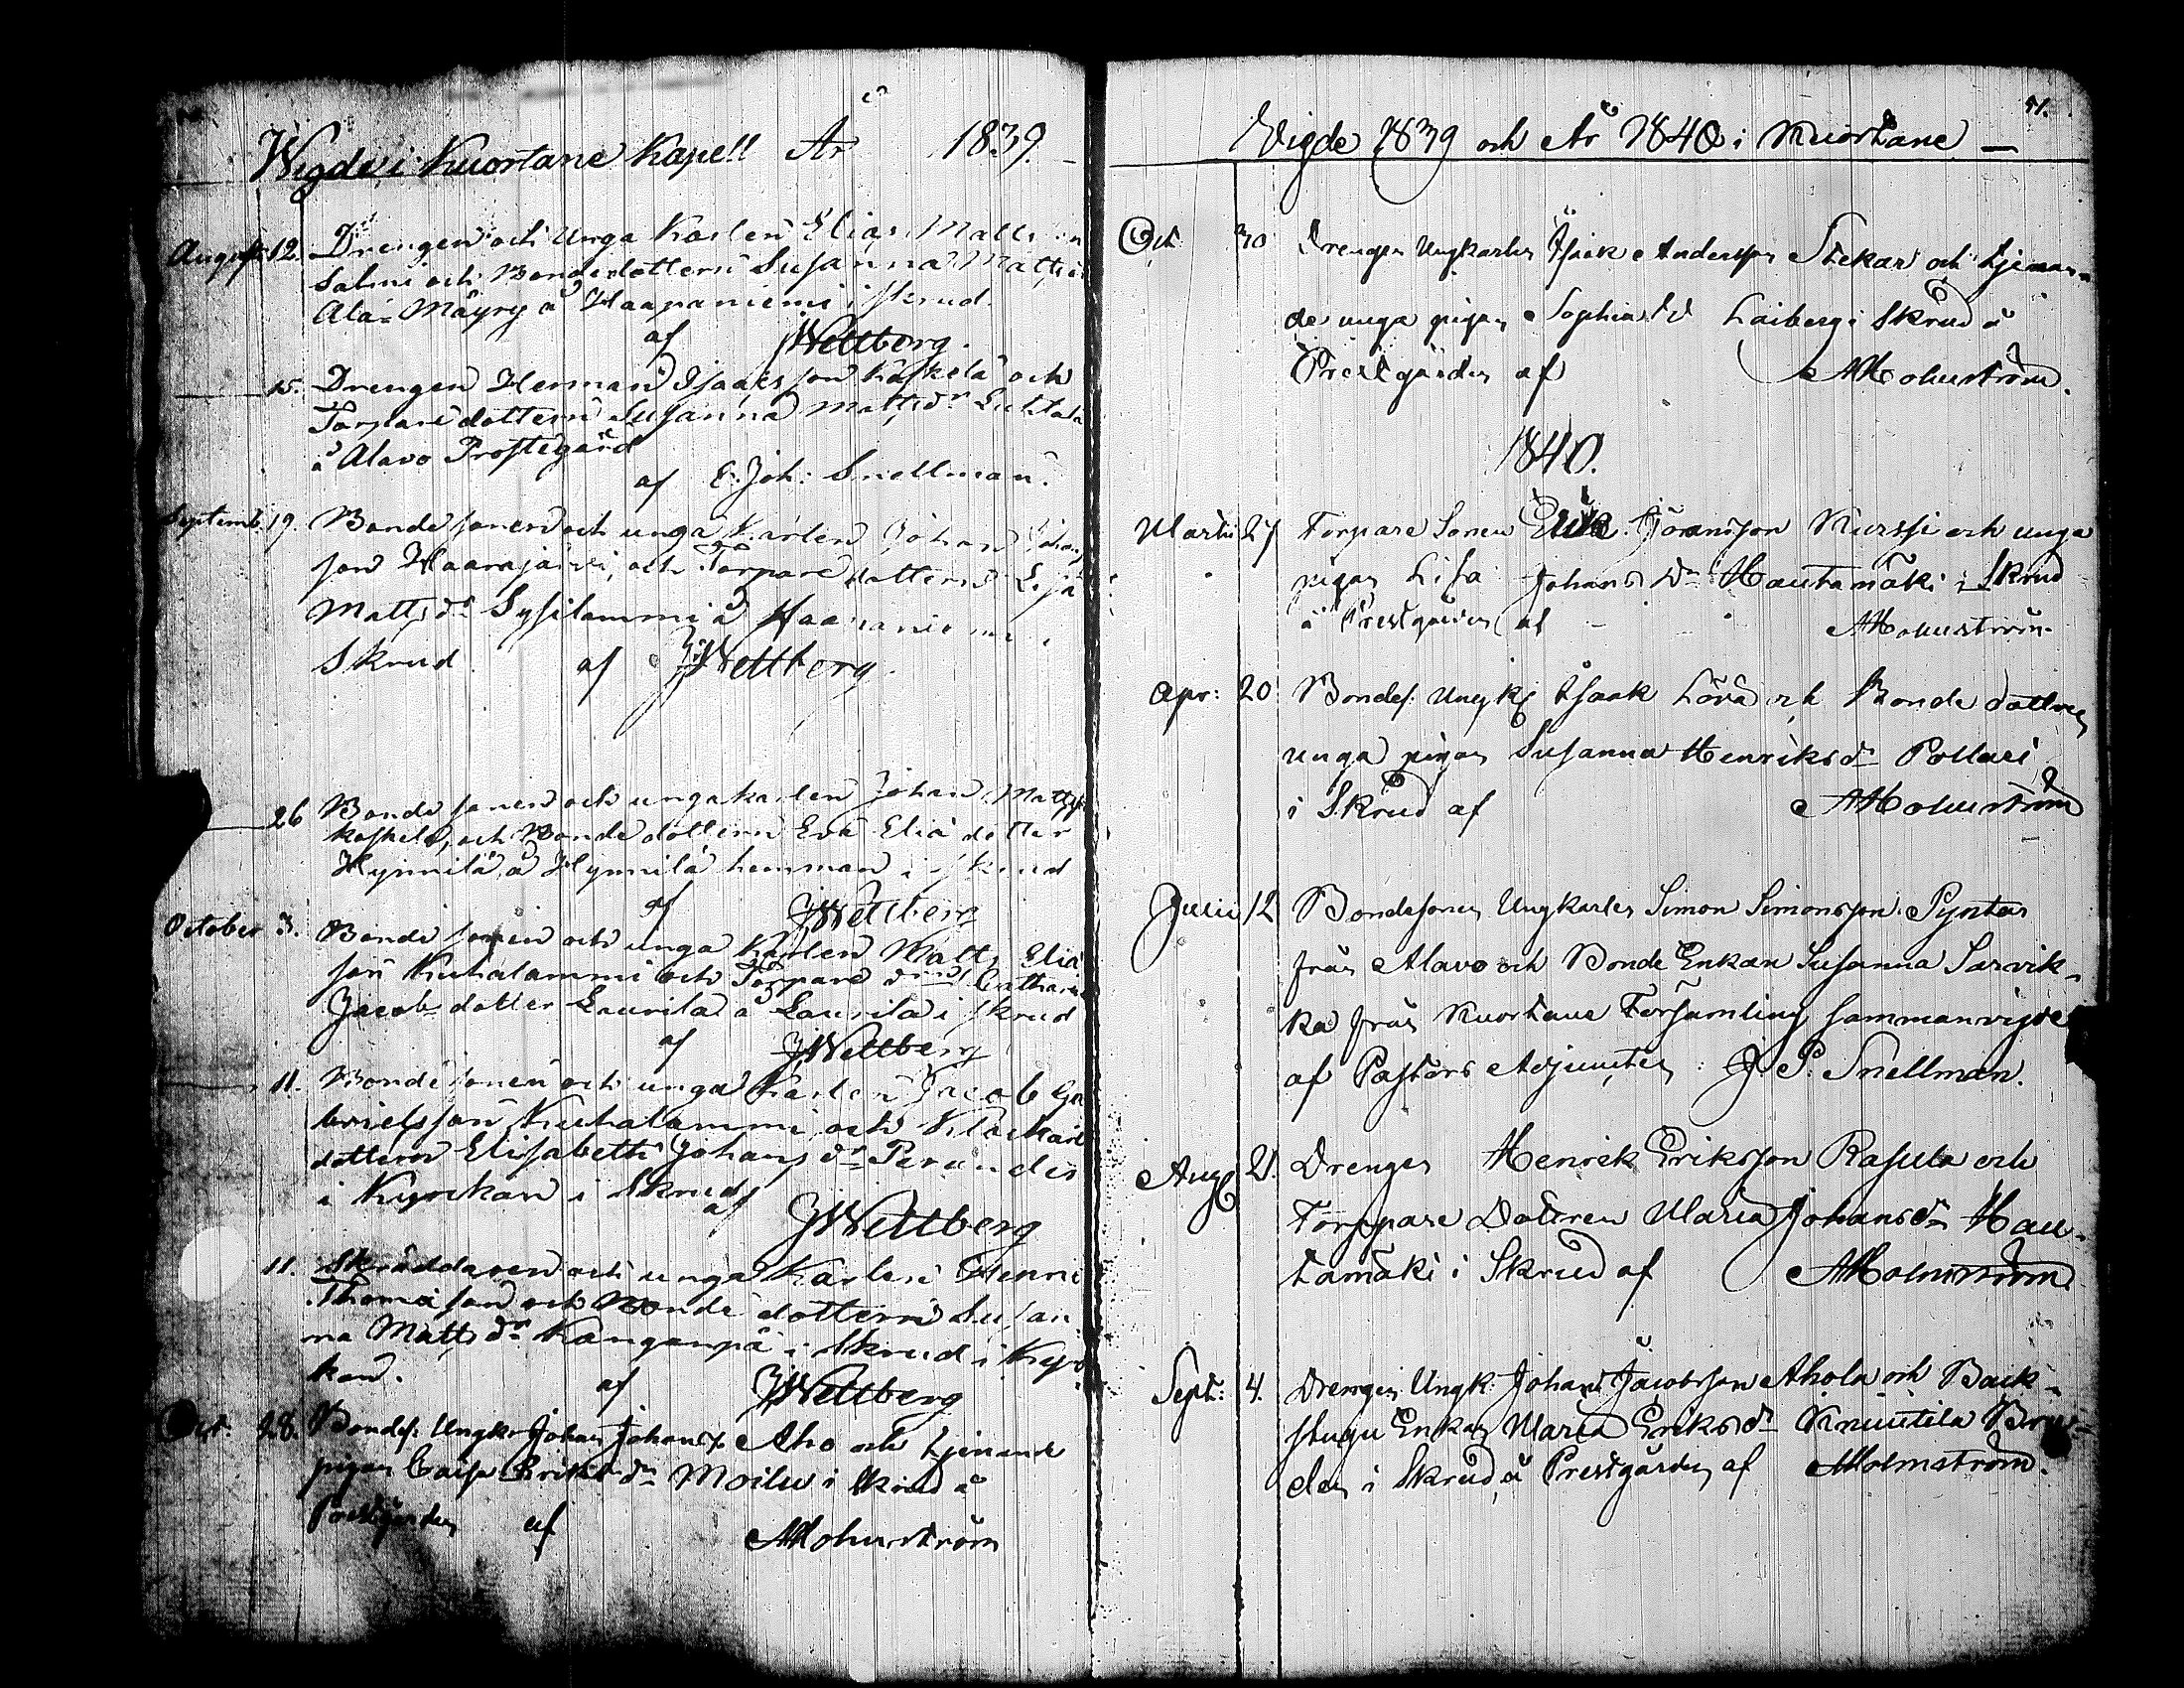 Wigde i Kuortane Kapell År 1839.
August 12. Drengen och Unga Karlen Elias Matts son
Salmi och Bondedottern Susanna Matts d
Ala-Mäyry å Haapaniemi i skrud
af JWettberg.
15. Drengen Herman Isaaksson Koskela och
Torpare dottern Susanna Mattsdr Luhtala
å Alavo Prostegård
af E. Joh: Snellman.
Septemb. 19. Bonde sonen och unga Karlen Johan Johans
son Haarajärvi, och Torpare dottern Lisa
Mattsdr Sysilammi å Haapaniemi i
Skrud af JWettberg.
26 Bonde sonen och unga karlen Johan Matts
Koskela, och Bonde dottern Eva Elia dotter
Hynnilä, å Hynnilä hemman i skrud
af JWettberg
October 3. Bonde sonen och unga Karlen Matts Elia
son Kuhalammi och Torpare Catharina
Jacobs dotter Laurila å Laurila i skrud
af JWettberg
11. Bonde sonen och unga Karlen Jacob Ga
brielsson Kuhalammi och Klockare
dottern Elisabeth Johans dr Perander
i Kyrckan i skrud
af JWettberg
11. Skräddaren och unga Karlen Henric
Thomasson och Bonde dottern Susan
na Matts dr Kanganpä i Skrud i Kyr
kan. af JWettberg
Oct. 28. Bondes. Ungk. Johan Johans. Aho och tjenande
pigan Caisa Eriks dr Moilu i skrud å
Prestgården af AHolmström
51.
Vigde 1839 och År 1840 i Kuortane —
Oct 30 Drengen Ungkarlen Isak Andersson Stekar och tjenan-
de unga pigan Sophia Laiberg i Skrud å
Prestgården af AHolmström.
1840.
Martii 27 Torpare Sonen Erik Göransson Kurssi och unga
pigan Lisa Johans Dr Hautamäki i Skrud
å Prestgården af AHolmström.
Apr: 20 Bondes. Ungk. Isaak Lövä och Bonde dottren
unga pigan Susanna Henriksdr Pollari
i Skrud af AHolmström
Julii 12 Bondesonen Ungkarlen Simon Simonsson Pyntar
från Alavo och Bonde Enkan Susanna Sarvik-
ka från Kuortane Församling sammanvigde
af Pastors Adjuncten: J. P. Snellman.
Aug 21. Drengen Henrick Eriksson Rasula och
Torppare Dottren Maria Johansdr Hau-
tamäki i Skrud af AHolmström
Sept: 4. Drengen Ungk. Johan Jacobsson Ahola och Back-
stugu Enkan Maria Eriksdr Knuutila Brun-
den i Skrud, å Prestgården af AHolmström.